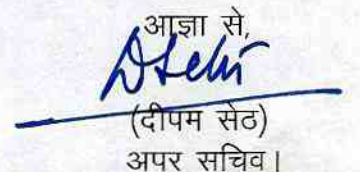 आज्ञा से,
(दीपम सेठ)
अपर सचिव।